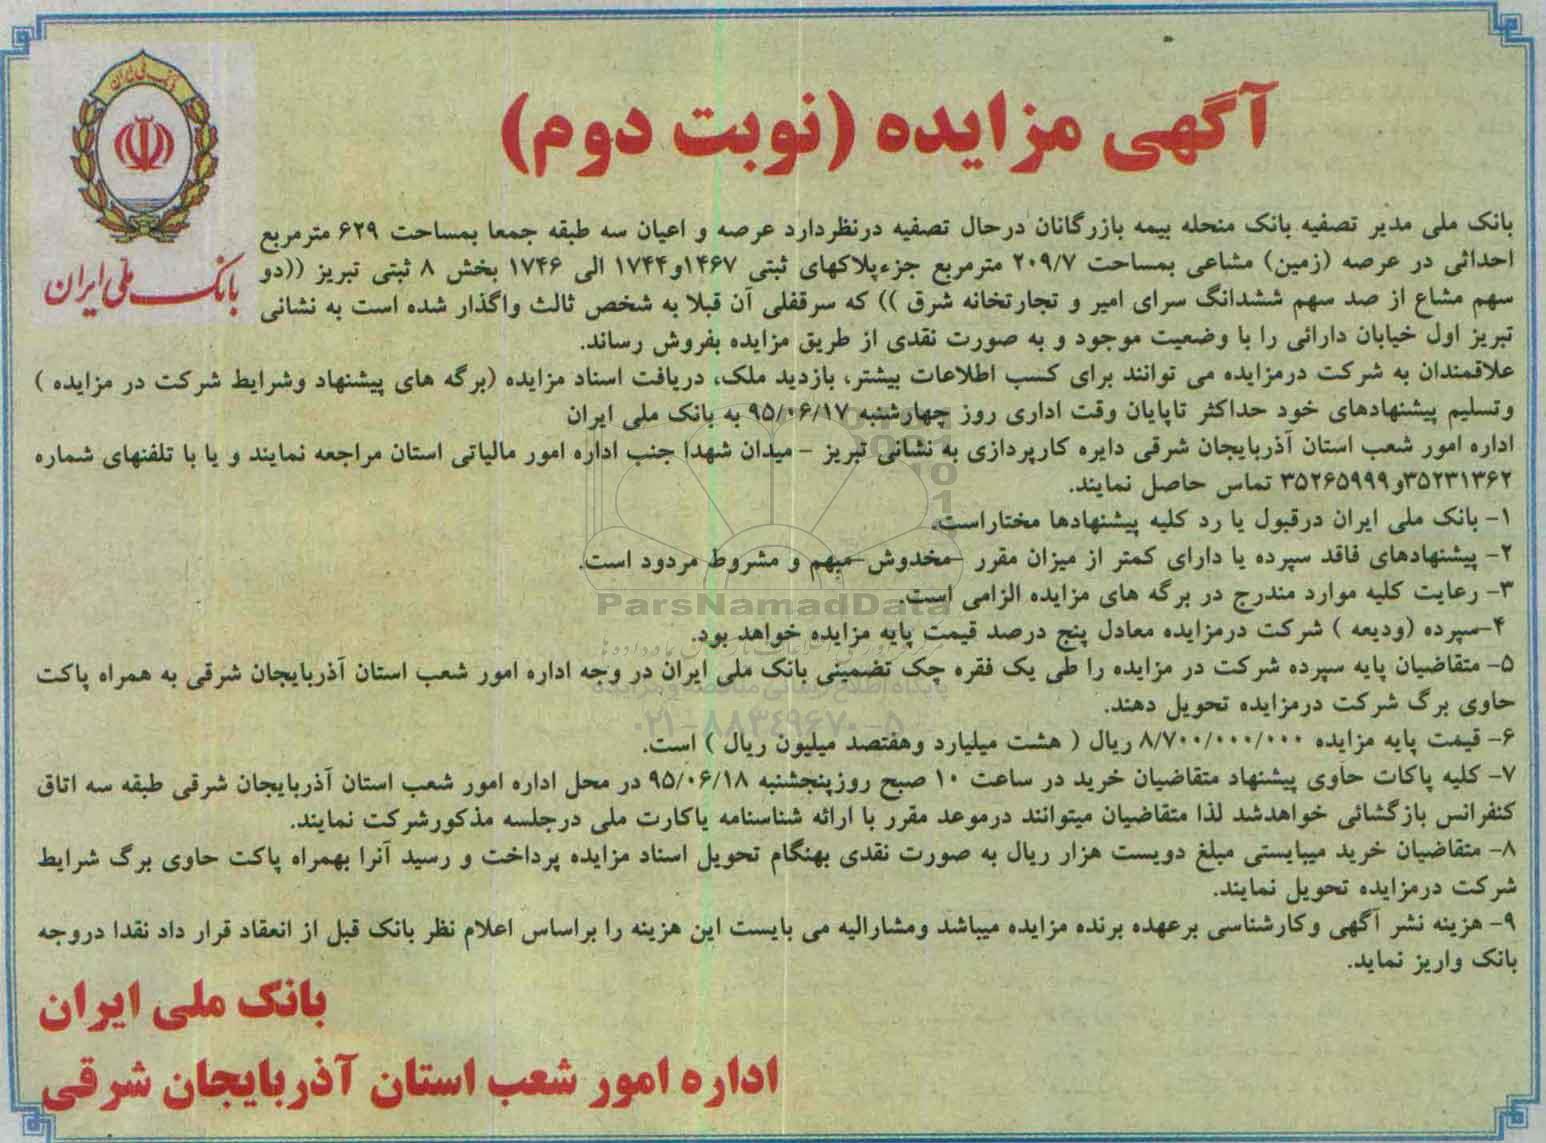 آگهی مزایده (نوبت دوم)
بانک ملی ایران
بانک ملی ایران
بانک ملی مدیر تصفیه بانک منحله بیمه بازرگانان درحال تصفیه درنظردارد عرصه و اعیان سه طبقه جمعا بمساحت ۶۲۹ مترمربع
احداثی در عرصه (زمین) مشاعی بمساحت ۲۰۹/۷ مترمربع جزءپلاکهای ثبتی ۱۴۶۷و۱۷۴۴ الی ۱۷۴۶ بخش ۸ ثبتی تبریز ((دو
سهم مشاع از صد سهم ششدانگ سرای امیر و تجارتخانه شرق )) که سرقفلی آن قبلا به شخص ثالث واگذار شده است به نشانی
تبریز اول خیابان دارائی را با وضعیت موجود و به صورت نقدی از طریق مزایده بفروش رساند.
علاقمندان به شرکت درمزایده می توانند برای کسب اطلاعات بیشتر، بازدید ملک، دریافت اسناد مزایده (برگه های پیشنهاد وشرایط شرکت در مزایده )
وتسلیم پیشنهادهای خود حداکثر تاپایان وقت اداری روز چهارشنبه ۹۵/۰۶/۱۷ به بانک ملی ایران
اداره امور شعب استان آذربایجان شرقی دایره کارپردازی به نشانی تبریز - میدان شهدا جنب اداره امور مالیاتی استان مراجعه نمایند و یا با تلفنهای شماره
۳۵۲۳۱۳۶۲و۳۵۲۶۵۹۹۹ تماس حاصل نمایند.
۱- بانک ملی ایران درقبول یا رد کلیه پیشنهادها مختاراست.
۲- پیشنهادهای فاقد سپرده یا دارای کمتر از میزان مقرر -مخدوش-مبهم و مشروط مردود است.
۳- رعایت کلیه موارد مندرج در برگه های مزایده الزامی است.
ParsNamadData
۴-سپرده (ودیعه ) شرکت درمزایده معادل پنج درصد قیمت پایه مزایده خواهد بود.
۵- متقاضیان پایه سپرده شرکت در مزایده را طی یک فقره چک تضمینی بانک ملی ایران در وجه اداره امور شعب استان آذربایجان شرقی به همراه پاکت
پایگاه اطلاع رسانی مناقصه و مزایده
حاوی برگ شرکت درمزایده تحویل دهند.
۰۲۱-۸۸۳۴۹۶۷۰-۵
۶- قیمت پایه مزایده ۸/۷۰۰/۰۰۰/۰۰۰ ریال ( هشت میلیارد وهفتصد میلیون ریال ) است.
۷- کلیه پاکات حاوی پیشنهاد متقاضیان خرید در ساعت ۱۰ صبح روزپنجشنبه ۹۵/۰۶/۱۸ در محل اداره امور شعب استان آذربایجان شرقی طبقه سه اتاق
کنفرانس بازگشائی خواهدشد لذا متقاضیان میتوانند درموعد مقرر با ارائه شناسنامه یاکارت ملی درجلسه مذکورشرکت نمایند.
۸- متقاضیان خرید میبایستی مبلغ دویست هزار ریال به صورت نقدی بهنگام تحویل اسناد مزایده پرداخت و رسید آنرا بهمراه پاکت حاوی برگ شرایط
شرکت درمزایده تحویل نمایند.
۹- هزینه نشر آگهی وکارشناسی برعهده برنده مزایده میباشد ومشارالیه می بایست این هزینه را براساس اعلام نظر بانک قبل از انعقاد قرار داد نقدا دروجه
بانک واریز نماید.
بانک ملی ایران
اداره امور شعب استان آذربایجان شرقی